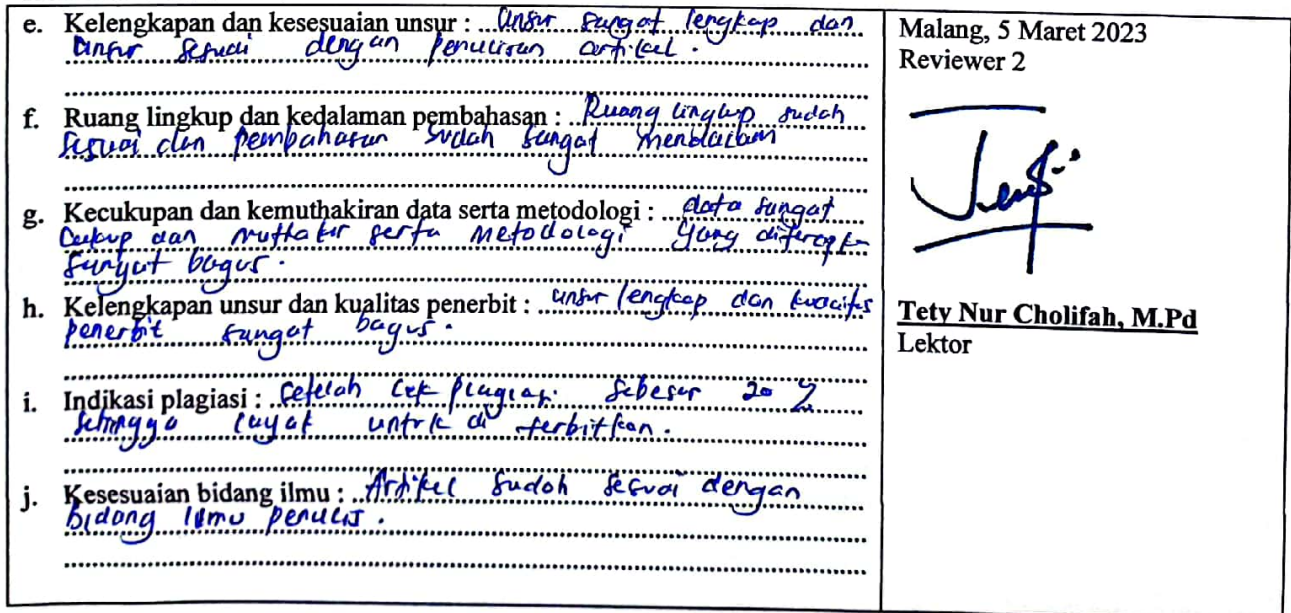 e. Kelengkapan dan kesesuaian unsur : unsur sangat lengkap dan
unsur sesuai dengan penulisan artikel.
f. Ruang lingkup dan kedalaman pembahasan : Ruang lingkup sudah
sesuai dan pembahasan sudah sangat mendalam
g. Kecukupan dan kemuthakiran data serta metodologi : data sangat
cukup dan muthakir serta metodologi yang diterapkn
sangat bagus.
h. Kelengkapan unsur dan kualitas penerbit : unsur lengkap dan kualits
penerbit sangat bagus.
i. Indikasi plagiasi : Setelah cek plagiasi sebesar 20 %
sehingga layak untuk di terbitkan.
j. Kesesuaian bidang ilmu : Artikel sudah sesuai dengan
bidang ilmu penulis.
Malang, 5 Maret 2023
Reviewer 2
Tety Nur Cholifah, M.Pd
Lektor